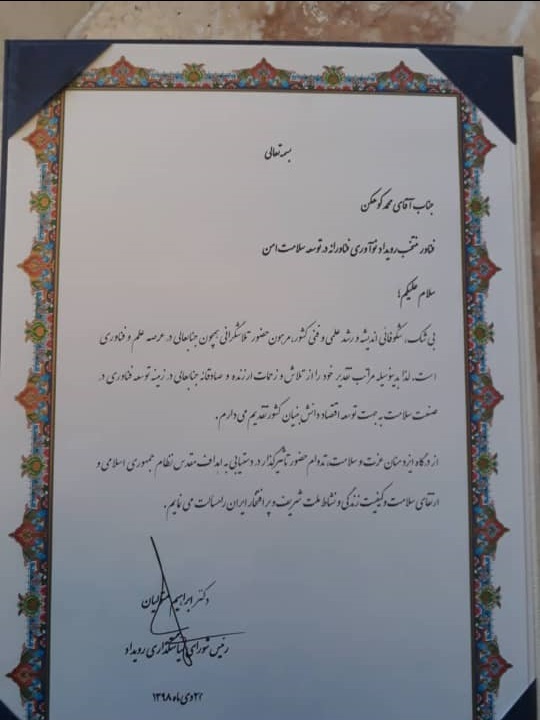 بسمه تعالی
جناب آقای محمد کوهکن
فناور منتخب رویداد نوآوری فناورانه در توسعه سلامت امن
سلام علیکم؛
بی شک، شکوفائی اندیشه و رشد علمی و فنی کشور، مرهون حضور تلاشگرانی همچون جنابعالی در عرصه علم و فناوری
است. لذا بدینوسیله مراتب تقدیر خود را از تلاش و زحمات ارزنده و صادقانه جنابعالی در زمینه توسعه فناوری در
صنعت سلامت به جهت توسعه اقتصاد دانش بنیان کشور تقدیم می دارم.
از درگاه ایزد منان عزت و سلامت، تداوم حضور تاثیرگذار در دستیابی به اهداف مقدس نظام جمهوری اسلامی و
ارتقای سلامت و کیفیت زندگی و نشاط ملت شریف و پر افتخار ایران را مسالت می نمایم.
دکتر ابراهیم متولیان
رئیس شورای سیاستگذاری رویداد
۲۲ دی ماه ۱۳۹۸